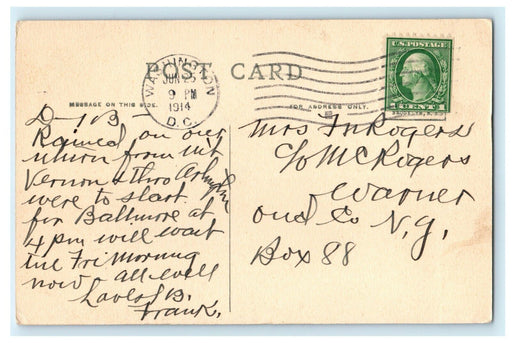 POST CARD
WASHINGTON
JUN 25
9 PM
1914
D.C.
U.S. POSTAGE
1 CENT 1
MESSAGE ON THIS SIDE.
FOR ADDRESS ONLY.
Rained on our
return from Mt
Vernon & thro Arlington
were to start
for Baltimore at
4 pm will wait
till Fri Morning
now - all well
Love
Frank.
Mrs Rogers
c/o McRogers
Warner
Ond Co N.Y.
Box 88